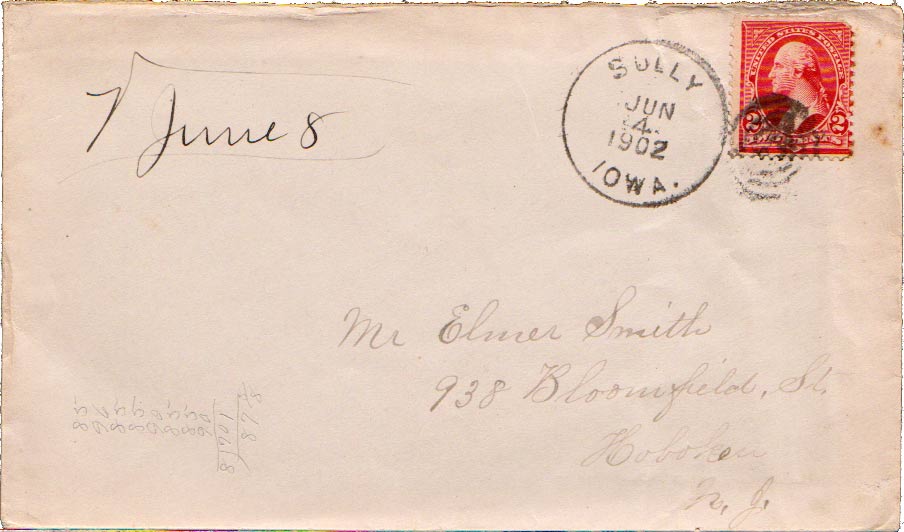 June 8
SULLY
JUN
4
1902
IOWA.
UNITED STATES POSTAGE
2 2
Mr Elmer Smith
938 Bloomfield, St.
Hoboken
N. J.